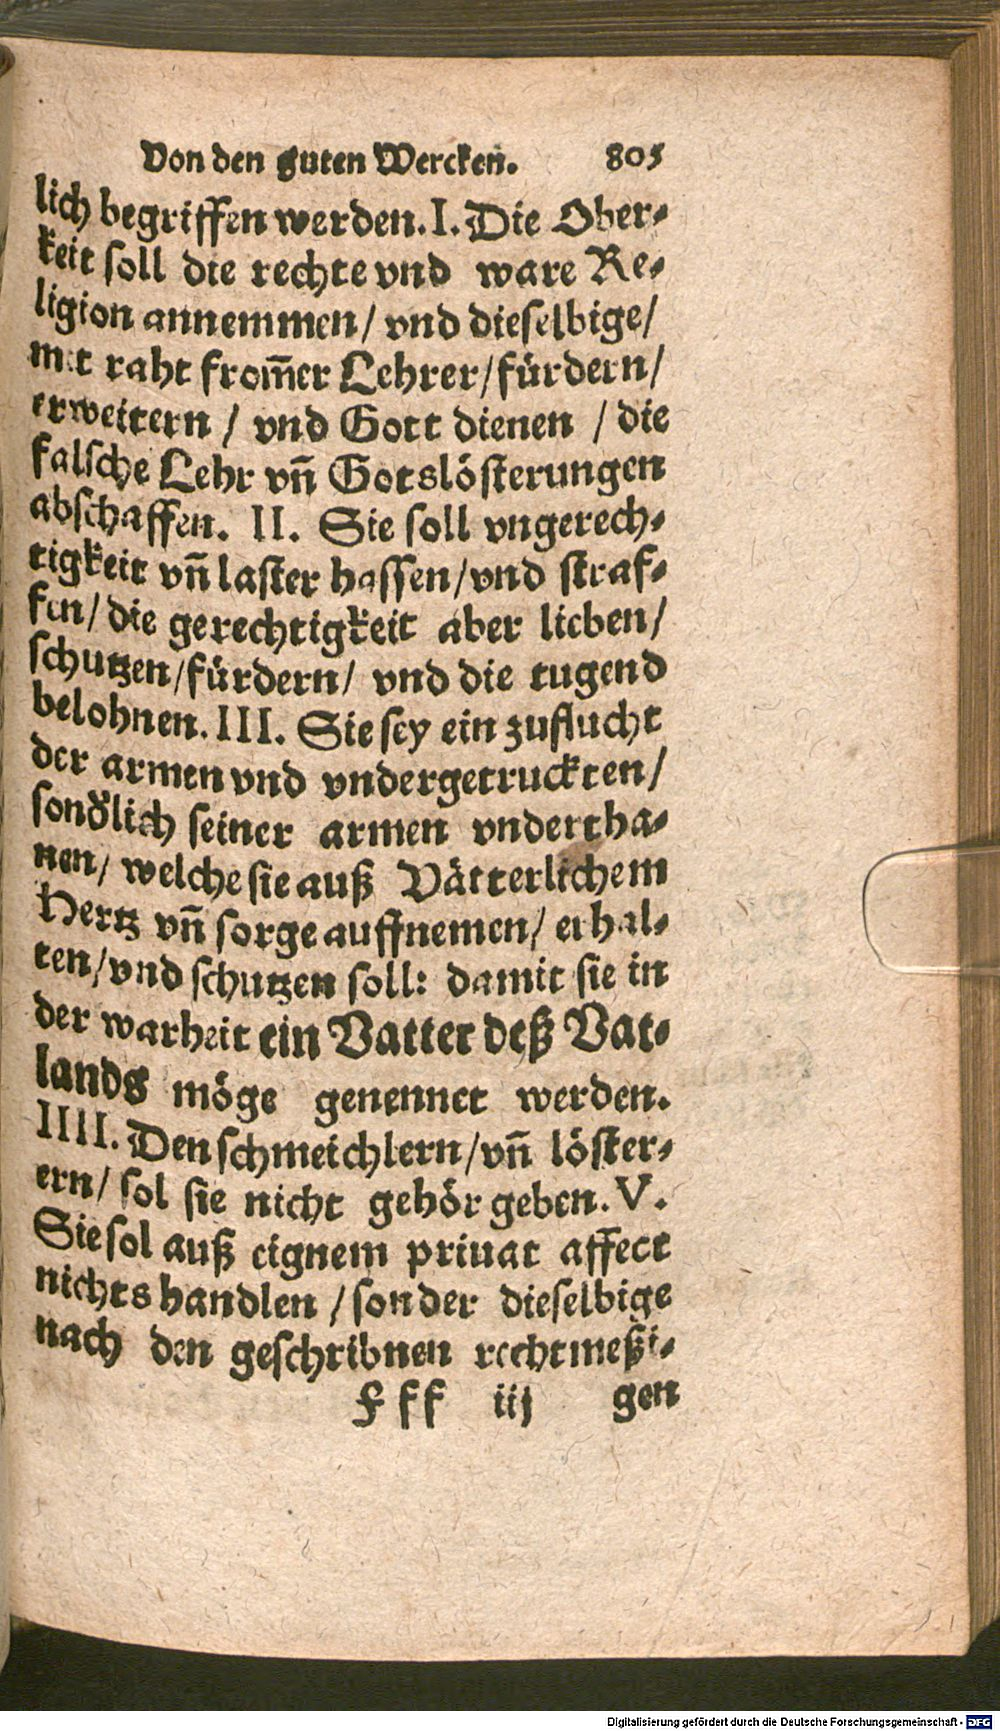 Von den guten Wercken. 805
lich begriffen werden. I. Die Ober-
keit soll die rechte vnd ware Re-
ligion annemmen/ vnd dieselbige/
mit raht from̃er Lehrer/ fürdern/
erweitern/ vnd Gott dienen/ die
falsche Lehr vñ Gotslösterungen
abschaffen. II. Sie soll vngerech-
tigkeit vñ laster hassen/ vnd straf-
fen/ die gerechtigkeit aber lieben/
schutzen/ fürdern/ vnd die tugend
belohnen. III. Sie sey ein zuflucht
der armen vnd vndergetruckten/
sonď̃lich seiner armen vndertha-
nen/ welche sie auß Vätterlichem
Hertz vñ sorge auffnemen/ erhal-
ten/ vnd schutzen soll: damit sie in
der warheit ein Vatter deß Vat-
lands möge genennet werden.
IIII. Den schmeichlern/ vñ löster-
ern/ sol sie nicht gehör geben. V.
Sie sol auß eignem priuat affect
nichts handlen/ sonder dieselbige
nach den geschribnen rechtmeßi-
F ff iij gen
Digitalisierung gefördert durch die Deutsche Forschungsgemeinschaft - DFG